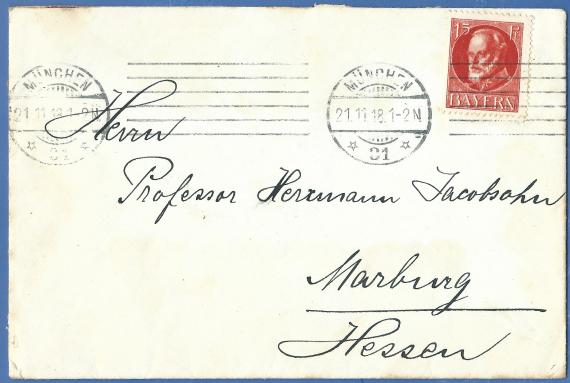 15 Pf
BAYERN
MÜNCHEN
21.11.18.1-2N
31
MÜNCHEN
21.11.18.1-2N
31
Herrn
Professor Herrmann Jacobsohn
Marburg
Hessen